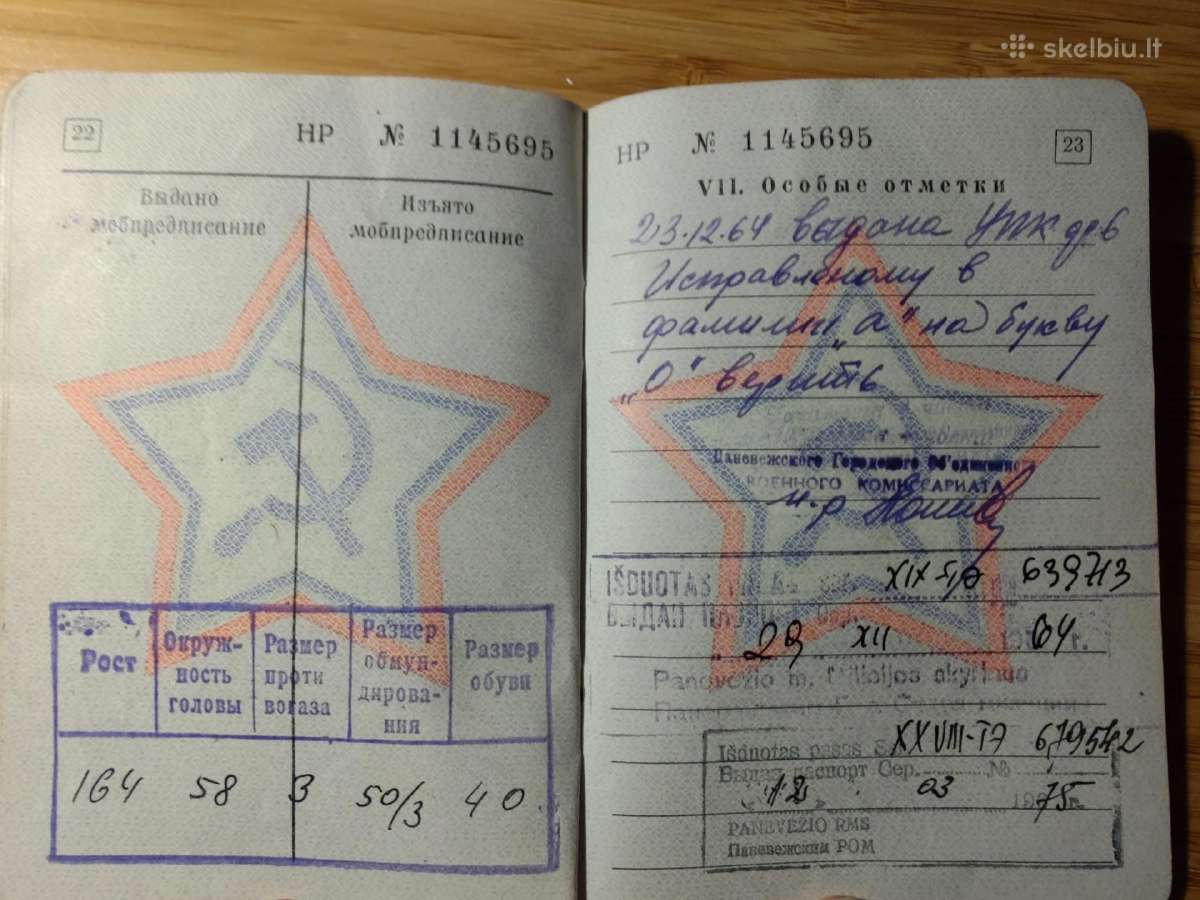 skelbiu.lt
22
НР № 1145695
Выдано
мобпредписание
Изъято
мобпредписание
Рост
Окруж-
ность
головы
Размер
проти
вогаза
Размер
обмун-
дирова-
ния
Размер
обуви
164 58 3 50/3 40
НР № 1145695
23
VII. Особые отметки
23.12.64 выдана
Исправленому в
фамилии „а" на букву
„О" верить
Паневежского Городского Об'единенного
ВОЕННОГО КОМИССАРИАТА
м-р
IŠDUOTAS XIX-ТД 639713
ВЫДАН
29 XII 64 г.
Panevėžio m. Milicijos skyriaus
Išduotas pasas S XXVIII-ТД 679542
Выдан паспорт Сер. №
12 03 1975 г.
PANEVĖŽIO RMS
Паневежским РОМ